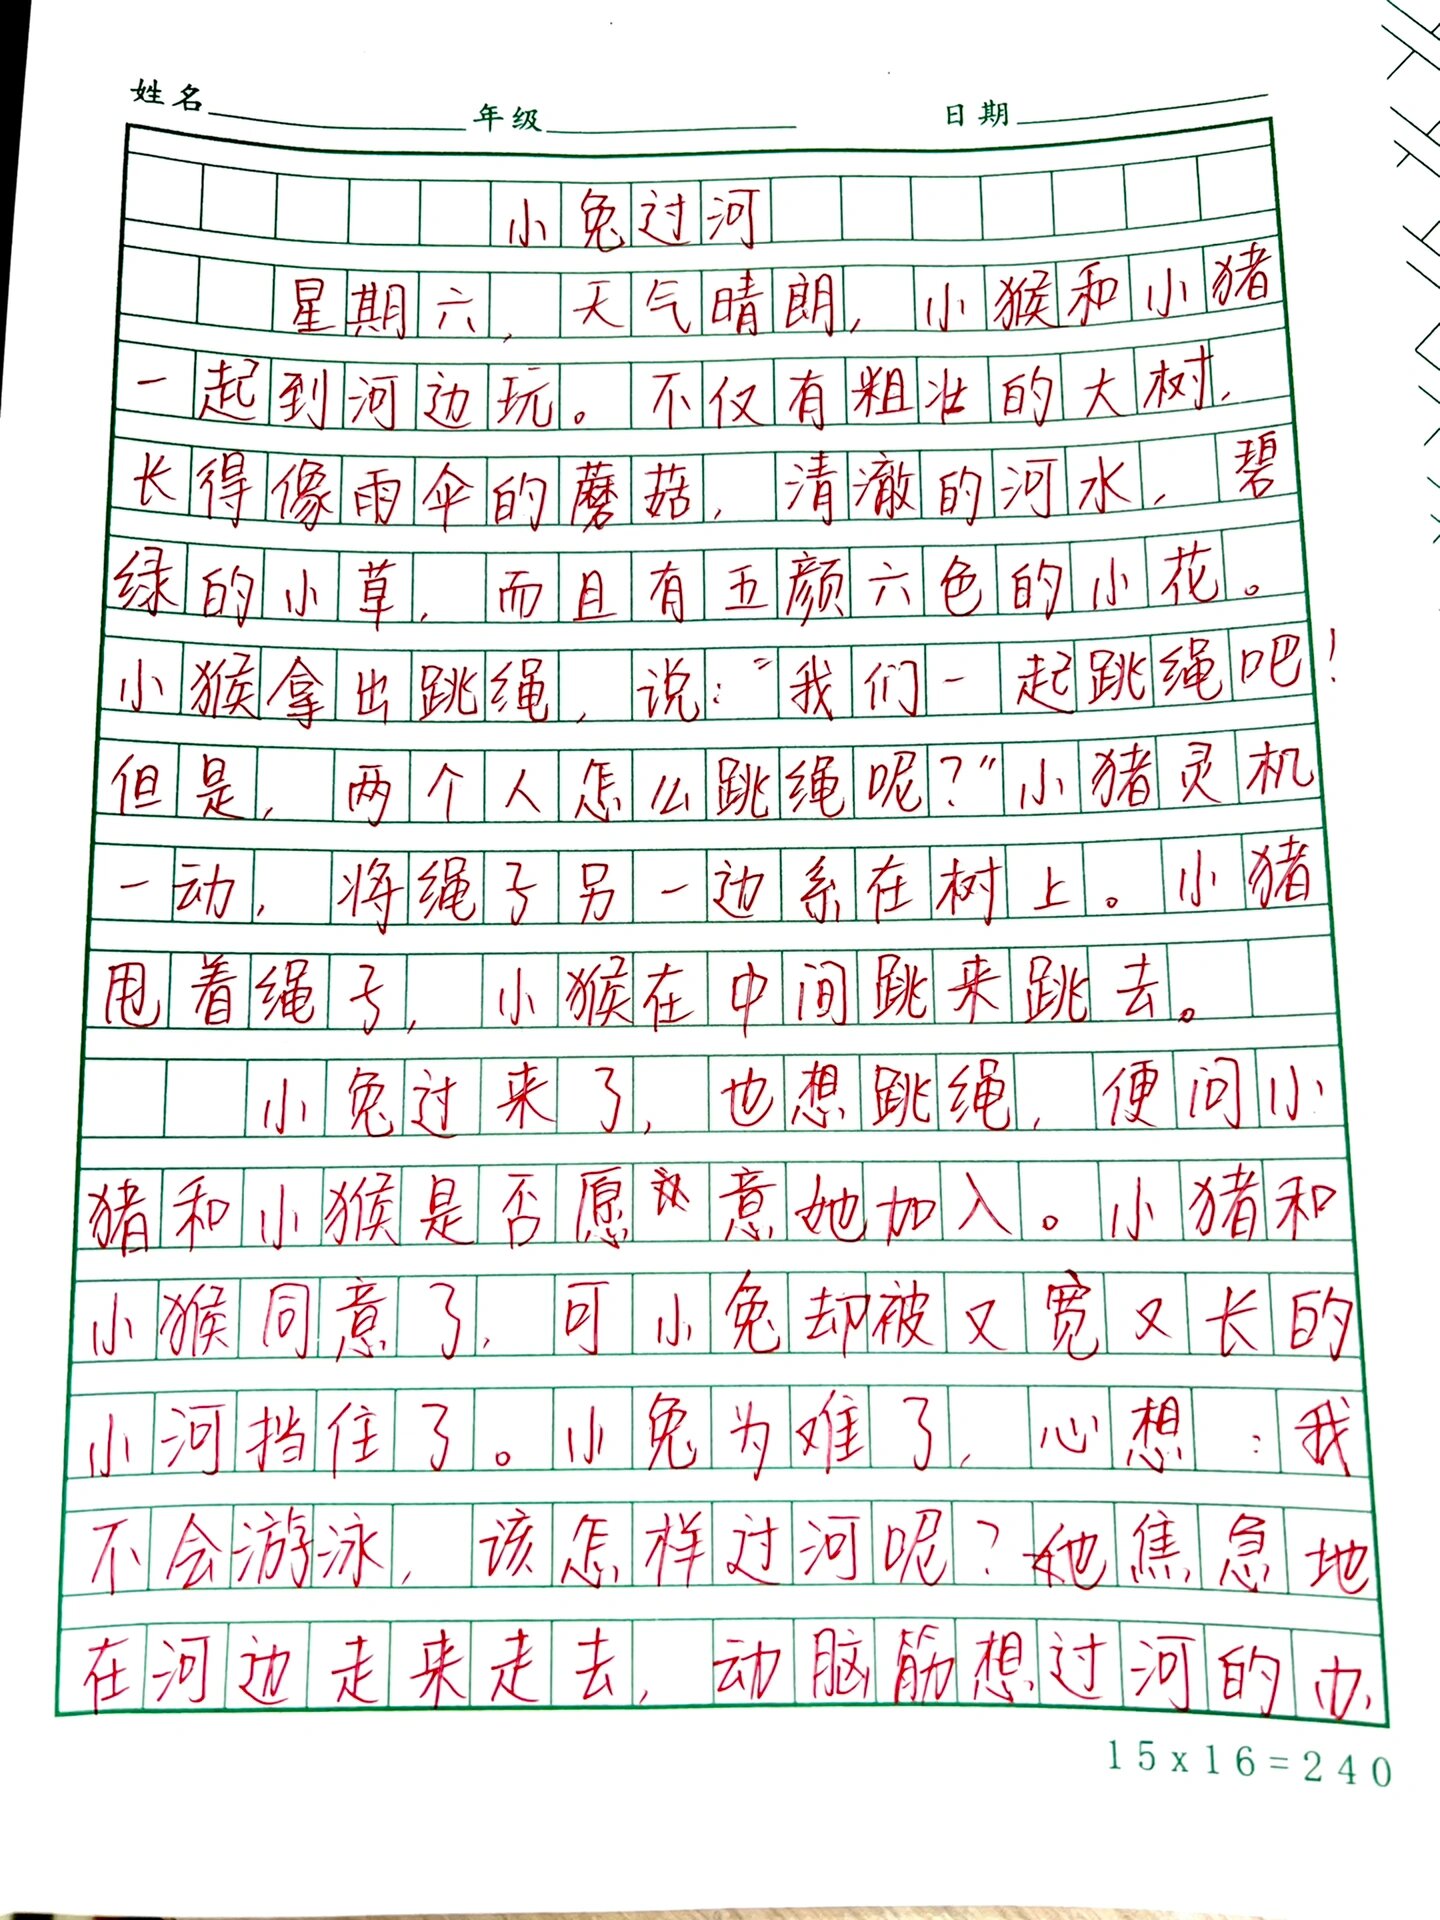 姓名 年级 日期
小兔过河
星期六,天气晴朗,小猴和小猪
一起到河边玩。不仅有粗壮的大树,
长得像雨伞的蘑菇,清澈的河水,碧
绿的小草,而且有五颜六色的小花。
小猴拿出跳绳,说:“我们一起跳绳吧!
但是,两个人怎么跳绳呢?”小猪灵机
一动,将绳子另一边系在树上。小猪
甩着绳子,小猴在中间跳来跳去。
小兔过来了,也想跳绳,便问小
猪和小猴是否愿意她加入。小猪和
小猴同意了,可小兔却被又宽又长的
小河挡住了。小兔为难了,心想:我
不会游泳,该怎样过河呢?她焦急地
在河边走来走去,动脑筋想过河的办
15x16=240